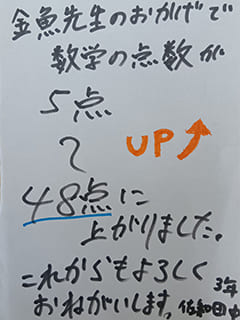 金魚先生のおかげで
数学の点数が
5点
〜
UP
48点に
上がりました。
これからもよろしく
おねがいします。
3年
佐和田中